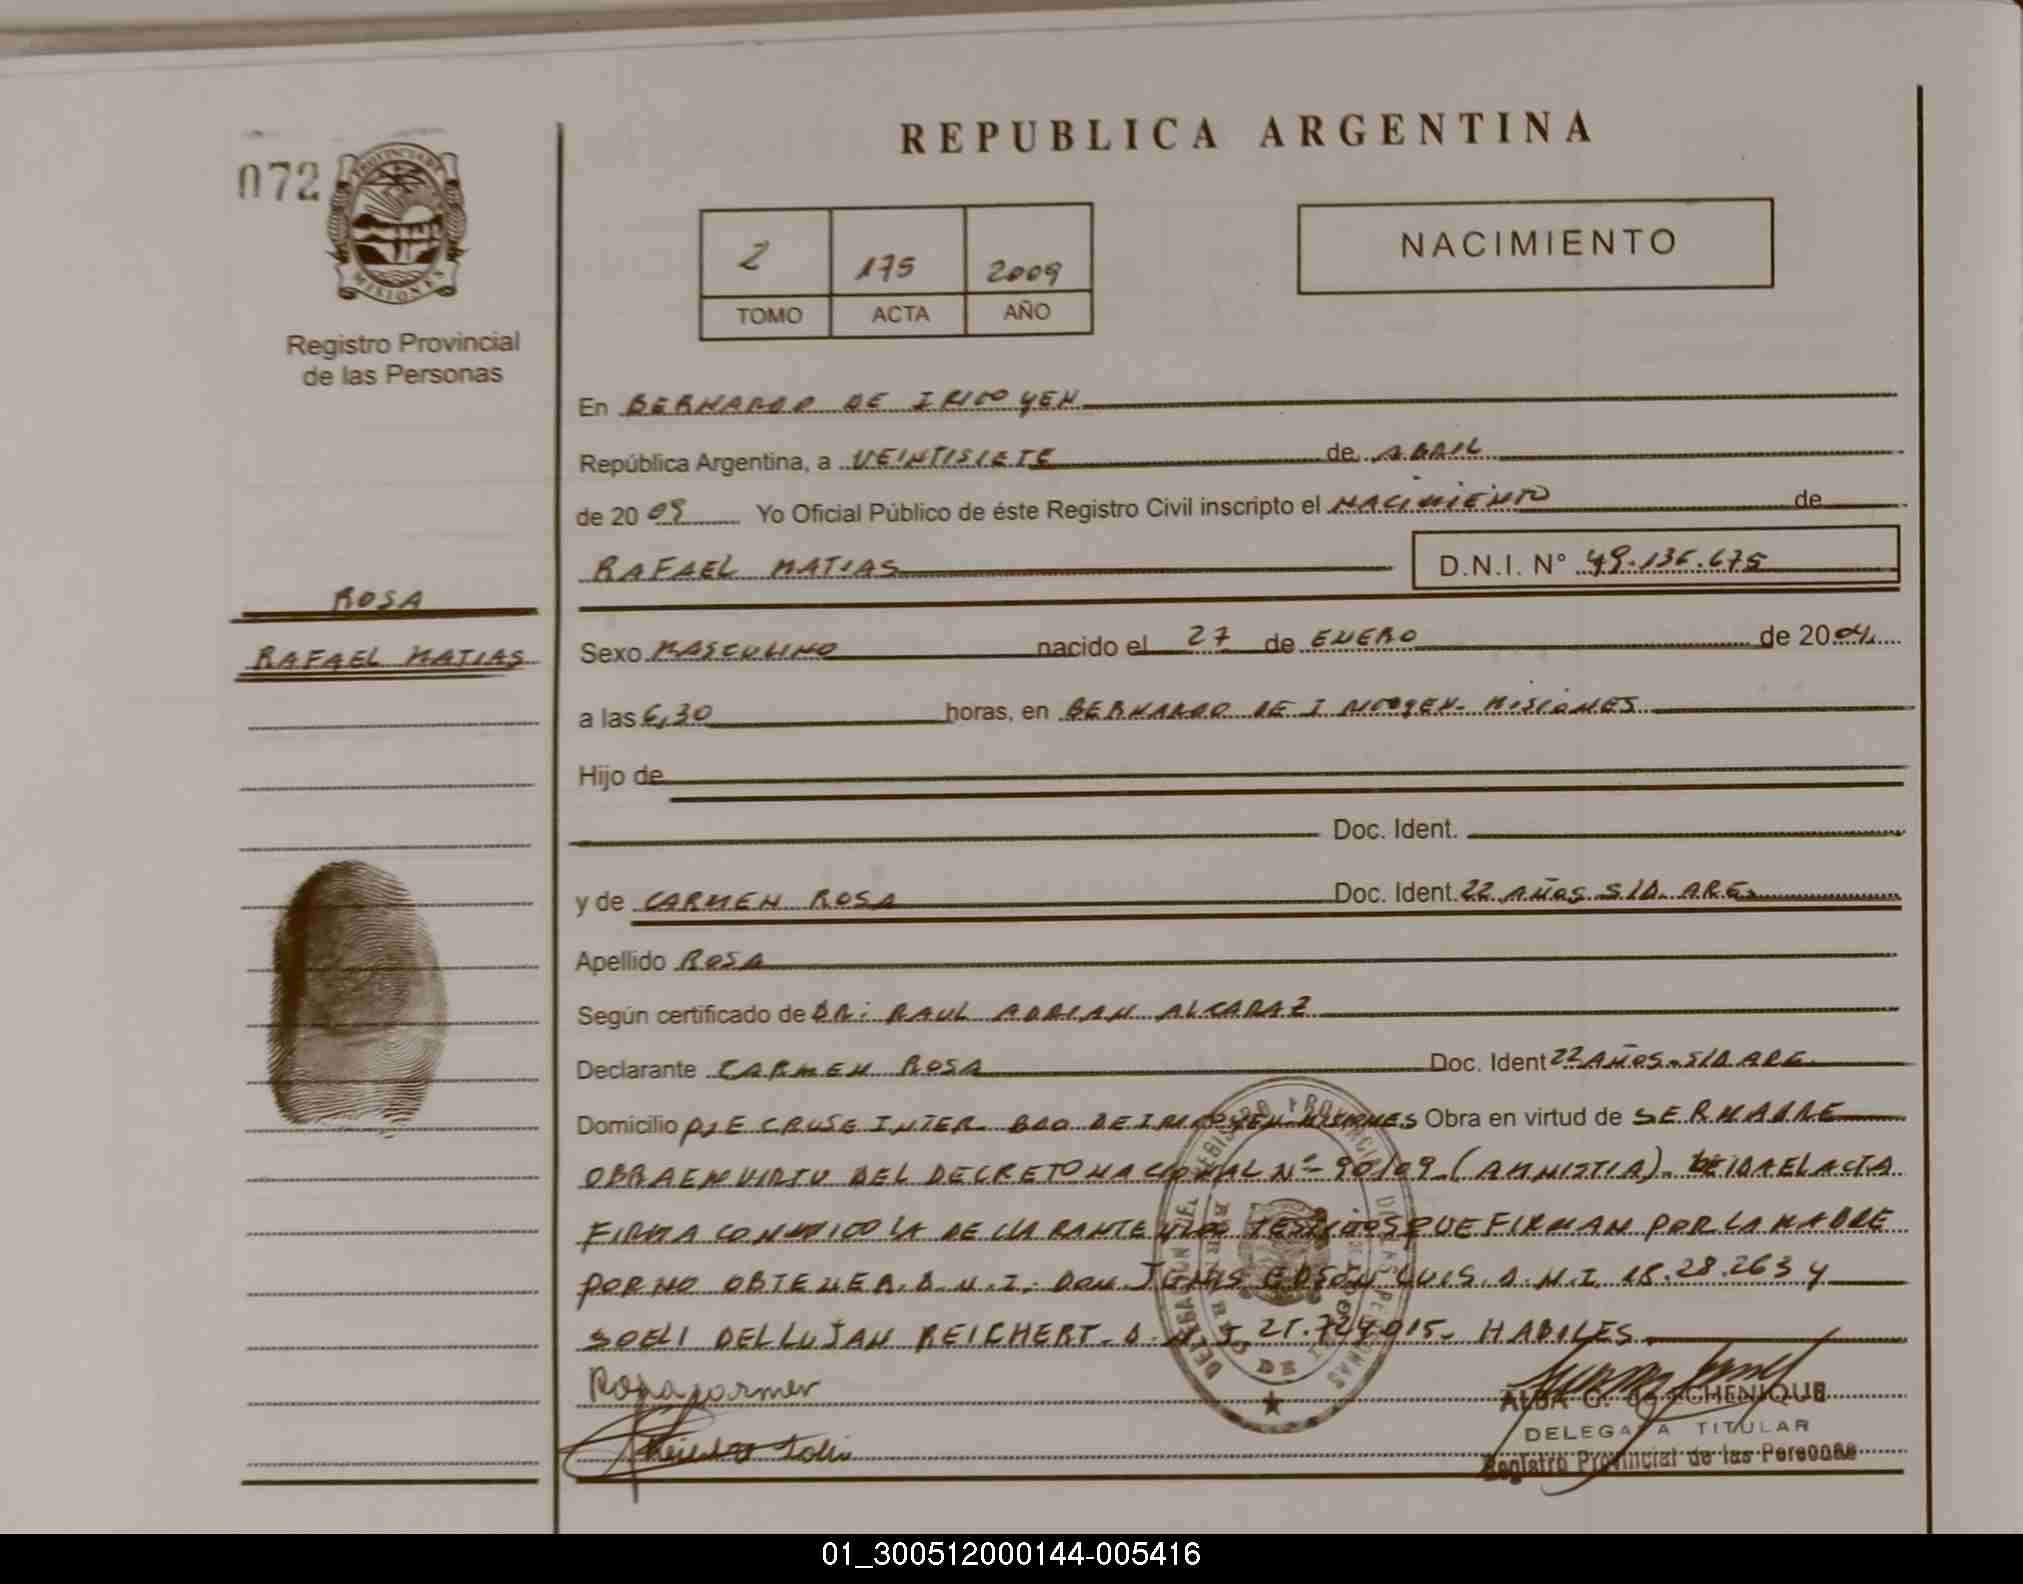 REPUBLICA ARGENTINA
072
PROVINCIA DE
MISIONES
Registro Provincial
de las Personas
2 175 2009
TOMO ACTA AÑO
NACIMIENTO
En BERNARDO DE IRIGOYEN
República Argentina, a VEINTISIETE de ABRIL
de 2009 Yo Oficial Público de éste Registro Civil inscripto el NACIMIENTO de
RAFAEL MATIAS D.N.I. N° 49.136.675
ROSA
RAFAEL MATIAS
Sexo MASCULINO nacido el 27 de ENERO de 2004
a las 6,30 horas, en BERNARDO DE IRIGOYEN- MISIONES
Hijo de
Doc. Ident.
y de CARMEN ROSA Doc. Ident. 22 AÑOS S/D. ARG.
Apellido ROSA
Según certificado de DR: RAUL ADRIAN ALCARAZ
Declarante CARMEN ROSA Doc. Ident 22 AÑOS-S/D ARG.
Domicilio PJE CRUSE INTER- BDO DE IRIGOYEN-MISIONES Obra en virtud de SER MADRE
OBRA EN VIRTU DEL DECRETO NACIONAL Nº- 90/09-(AMNISTIA)- LEIDA EL ACTA
FIRMA CONMIGO LA DECLARANTE Y LOS TESTIGOS QUE FIRMAN POR LA MADRE
POR NO OBTENER D.N.I. DON EDSON LUIS D.N.I. 18.28.263 Y
SOELI DEL LUJAN REICHERT- D.N.I 21.724.015- HABILES
Rosa Carmen
ALBA G. de ECHENIQUE
DELEGADA TITULAR
Registro Provincial de las Personas
REGISTRO PROVINCIAL DE LAS PERSONAS
01_300512000144-005416